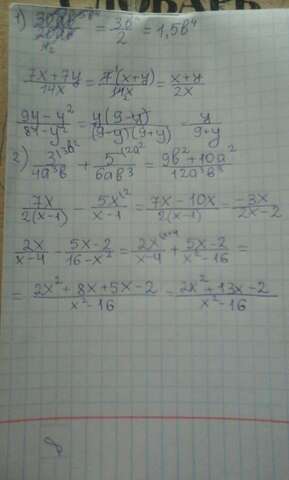 СЛОВАРЬ
1) = 3b⁴/2 = 1,5b⁴
(7x+7y)/14x = 7(x+y)/14x = (x+y)/2x
(9y-y²)/(81-y²) = y(9-y)/(9-y)(9+y) = y/(9+y)
2) 3/4a³b + 5/6ab³ = (9b²+10a²)/12a³b³
7x/2(x-1) - 5x/(x-1) = (7x-10x)/2(x-1) = -3x/(2x-2)
2x/(x-4) - (5x-2)/(16-x²) = 2x/(x-4) + (5x-2)/(x²-16) =
= (2x²+8x+5x-2)/(x²-16) = (2x²+13x-2)/(x²-16)